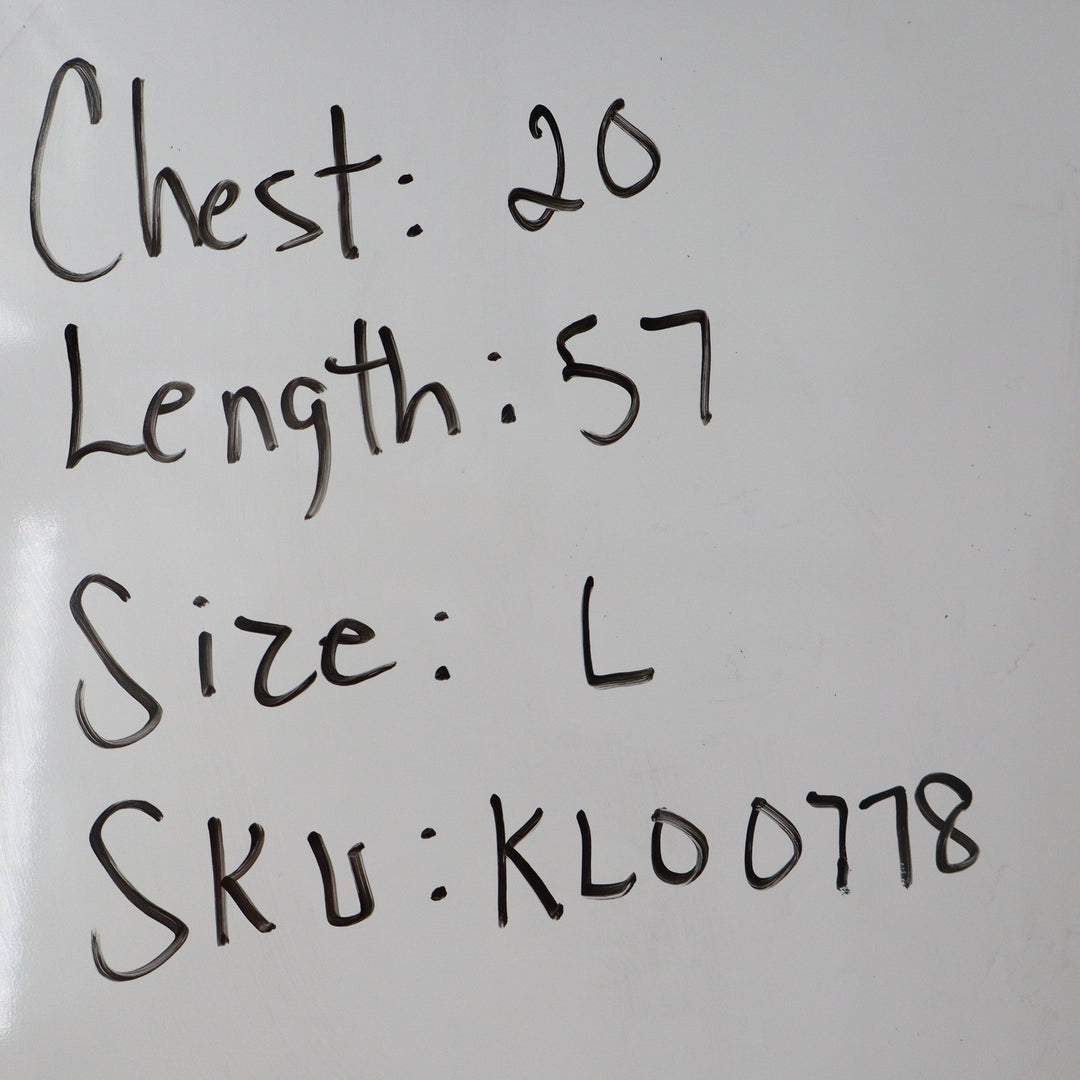 Chest: 20
Length: 57
Size: L
SKU: KL00778